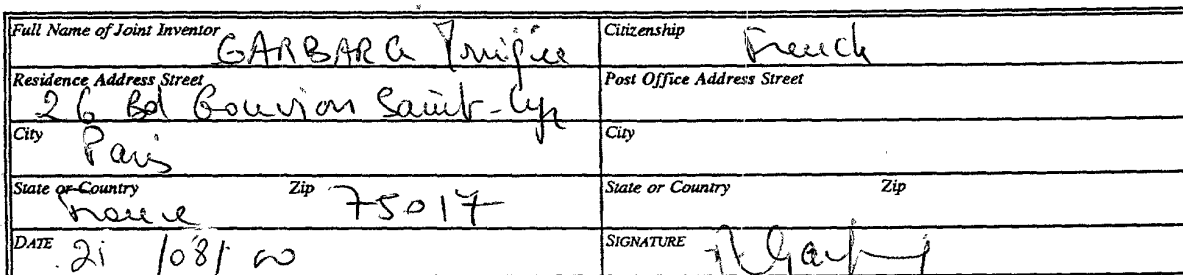 Full Name of Joint Inventor GARBARG
Citizenship French
Residence Address Street 26 Bd Gouvion Saint-Cyr
Post Office Address Street
City Paris
City
State or Country France Zip 75017
State or Country Zip
DATE 21/08/00
SIGNATURE